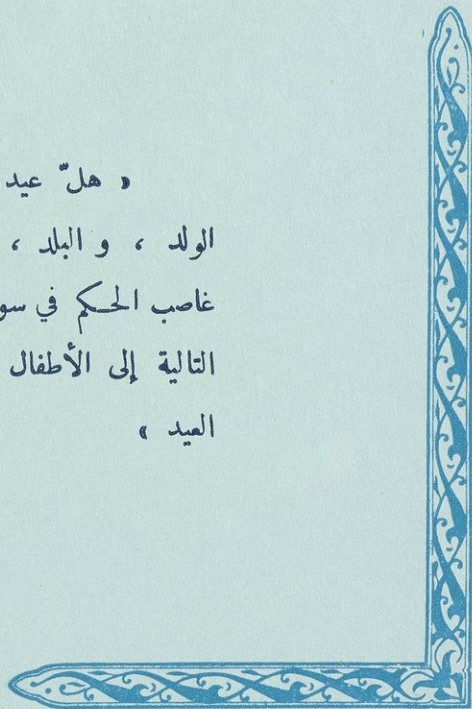 « هلّ عيد
الولد ، و البلد ،
غاصب الحكم في سو
التالية إلى الأطفال
العيد »